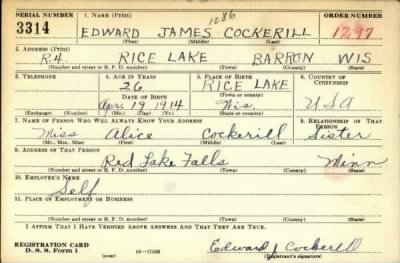 SERIAL NUMBER 1. NAME (Print) ORDER NUMBER
1286
3314 EDWARD JAMES COCKERILL 1297
(First) (Middle) (Last)
2. ADDRESS (Print)
R4. RICE LAKE BARRON WIS
(Number and street or R. F. D. number) (Town) (County) (State)
3. TELEPHONE 4. AGE IN YEARS 5. PLACE OF BIRTH 6. COUNTRY OF CITIZENSHIP
26 RICE LAKE
DATE OF BIRTH (Town or county)
Apr. 19 1914 Wis. USA
(Exchange) (Number) (Mo.) (Day) (Yr.) (State or country)
7. NAME OF PERSON WHO WILL ALWAYS KNOW YOUR ADDRESS 8. RELATIONSHIP OF THAT PERSON
Miss Alice Cockerill Sister
(Mr., Mrs., Miss) (First) (Middle) (Last)
9. ADDRESS OF THAT PERSON
Red Lake Falls Minn
(Number and street or R. F. D. number) (Town) (County) (State)
10. EMPLOYER'S NAME
Self
11. PLACE OF EMPLOYMENT OR BUSINESS
(Number and street or R. F. D. number) (Town) (County) (State)
I AFFIRM THAT I HAVE VERIFIED ABOVE ANSWERS AND THAT THEY ARE TRUE.
REGISTRATION CARD
D. S. S. Form 1 16—17105 Edward J Cockerill
(Registrant's signature)